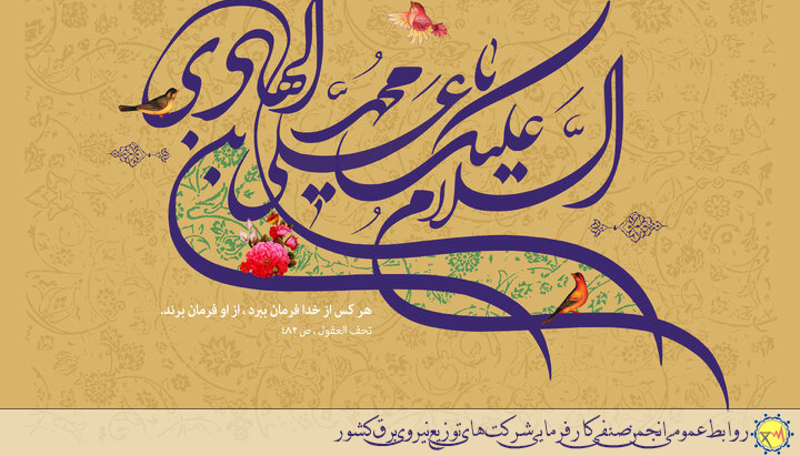 السلام علیک یا علی بن محمد الهادی
هر کس از خدا فرمان ببرد ، از او فرمان برند.
تحف العقول ، ص ۴۸۲
روابط عمومی انجمن صنفی کارفرمایی شرکت‌های توزیع نیروی برق کشور